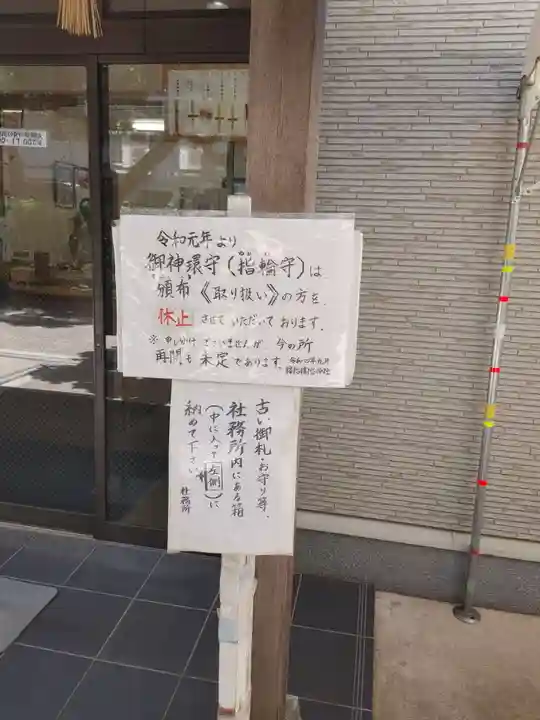 令和元年より
御神環守(指輪守)は
頒布《取り扱い》の方を
休止させていただいております。
※申しわけございませんが 今の所
再開も未定であります。
古い御札・お守り等、
社務所内にある箱
(中に入って左側)に
納めて下さい
社務所